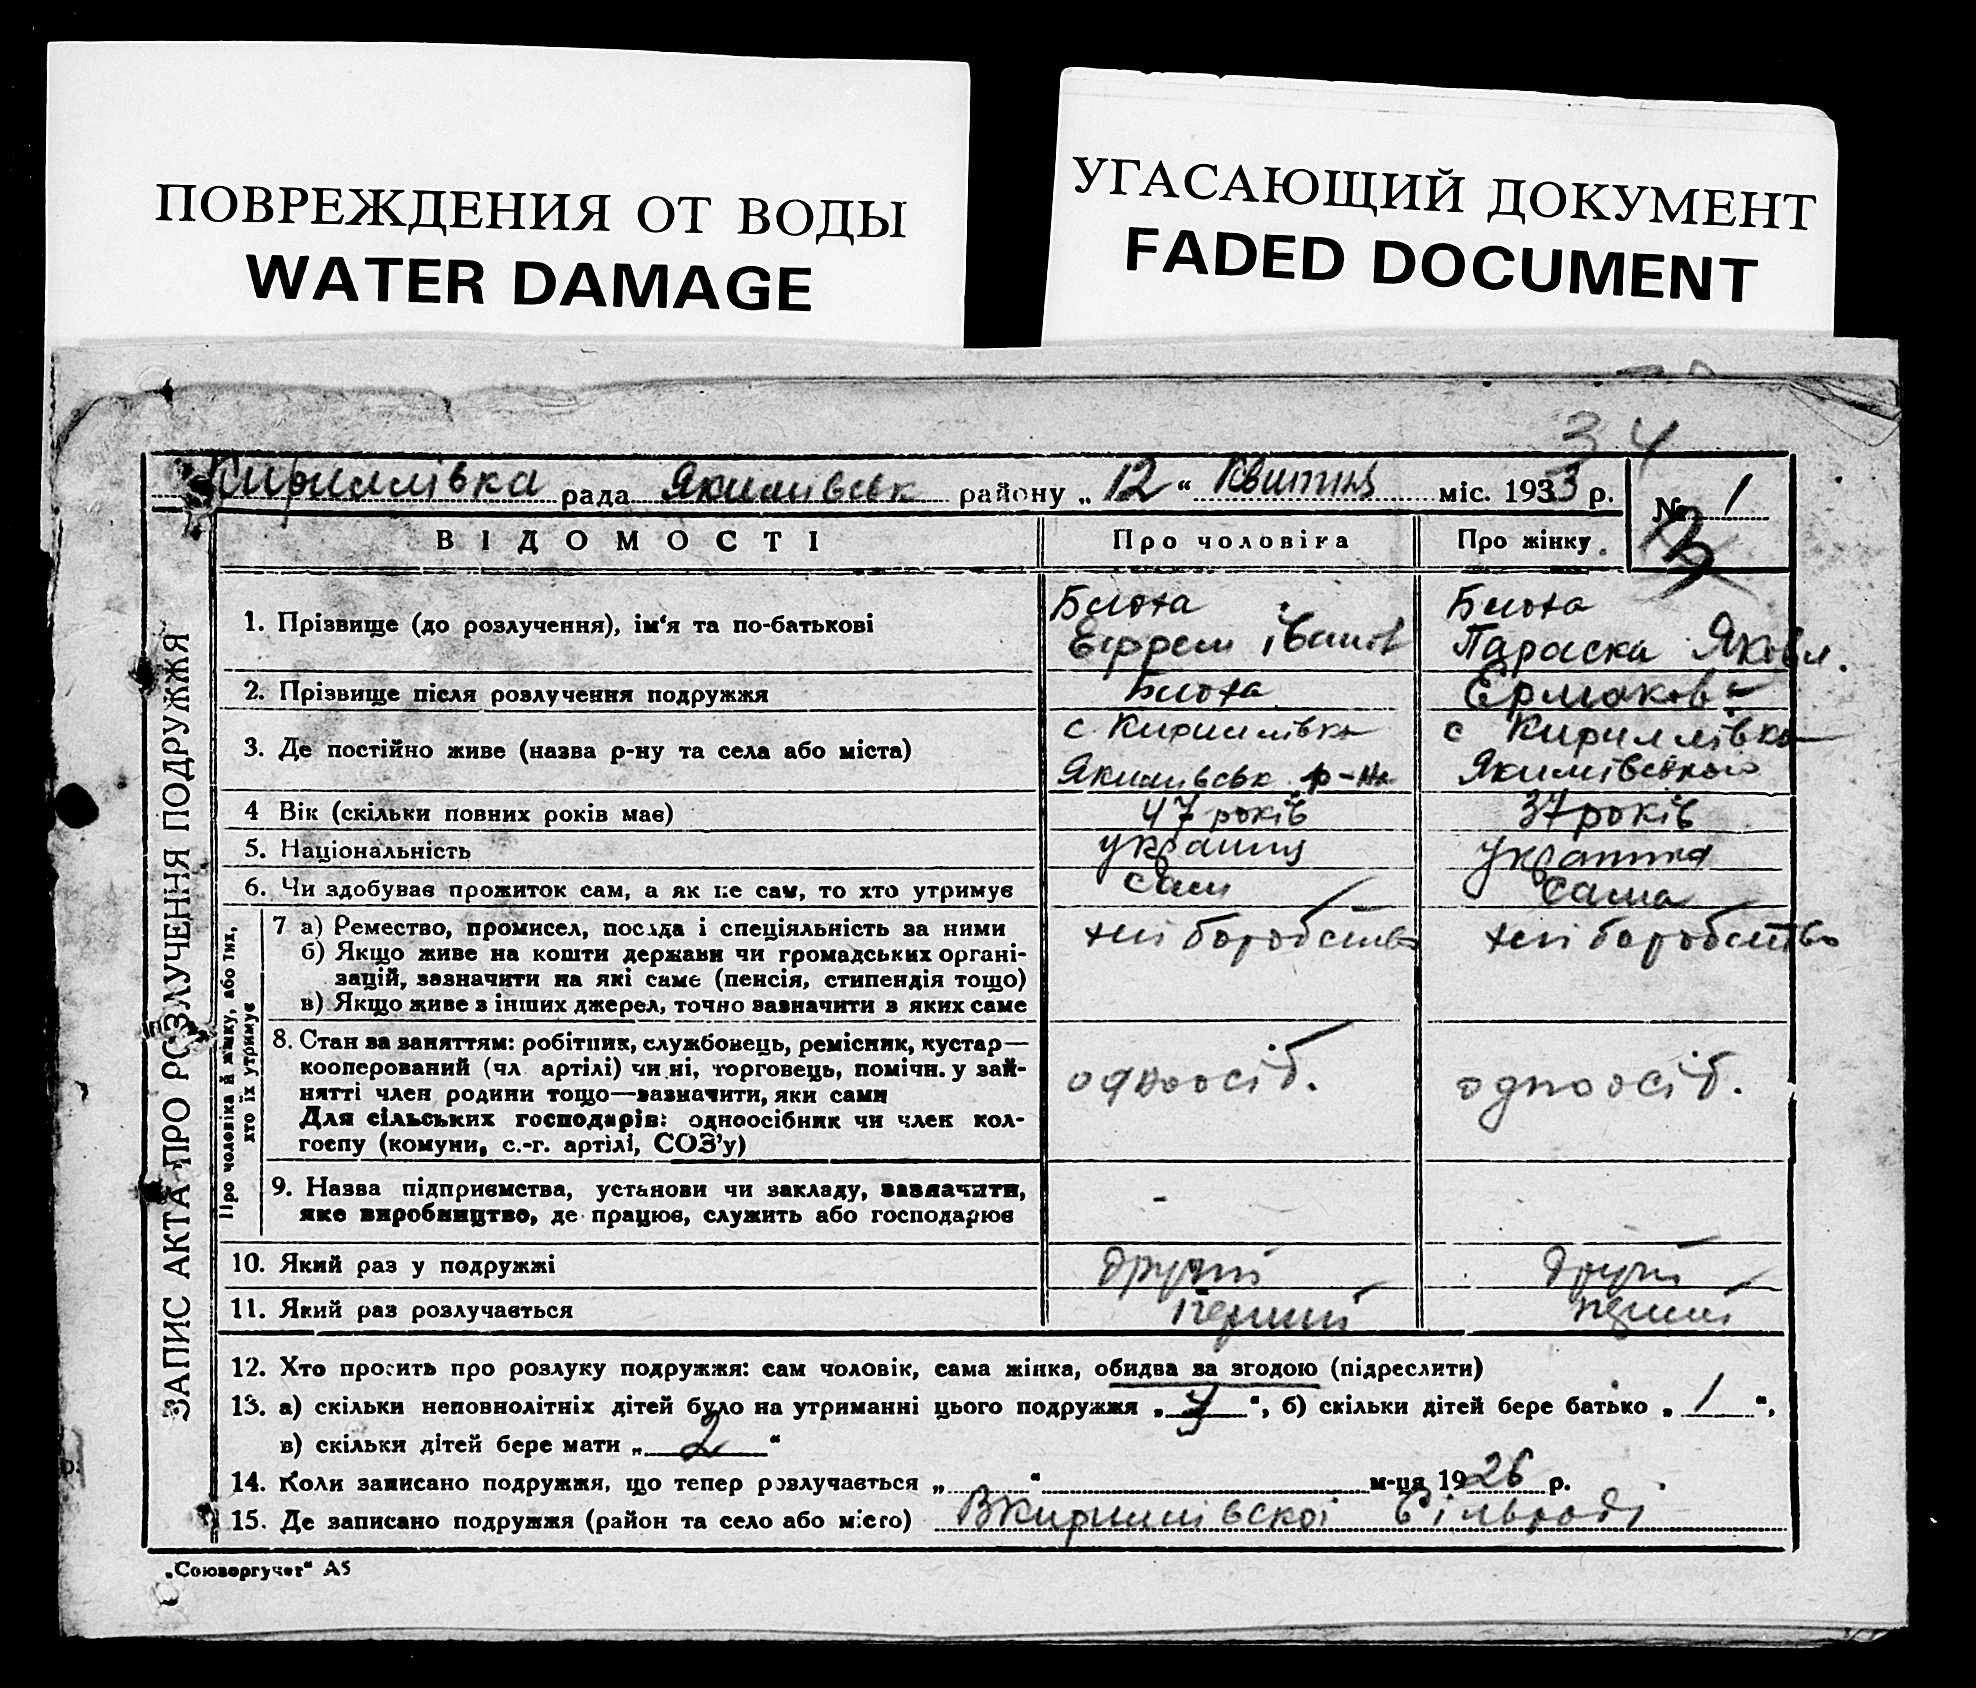 ПОВРЕЖДЕНИЯ ОТ ВОДЫ
WATER DAMAGE
УГАСАЮЩИЙ ДОКУМЕНТ
FADED DOCUMENT
34
Кириллівка рада Якимівськ району „ 12 “ Квітня міс. 1933 р.
№ 1
3
ЗАПИС АКТА ПРО РОЗЛУЧЕННЯ ПОДРУЖЖЯ
ВІДОМОСТІ Про чоловіка Про жінку
1. Прізвище (до розлучення), ім‘я та по-батькові
Блоха
Ефрем Іванов
Блоха
Параска Яковл.
2. Прізвище після розлучення подружжя Блоха Ермакова
3. Де постійно живе (назва р-ну та села або міста)
с. Кириллівка
Якимівськ р-на
с Кириллівка
Якимівського
4 Вік (скільки повних років має) 47 років 37 років
5. Національність украинц украинка
6. Чи здобуває прожиток сам, а як не сам, то хто утримує сам сама
Про чоловіка й жінку, або тих,
хто їх утримує
7 а) Ремество, промисел, посада і спеціяльність за ними
б) Якщо живе на кошти держави чи громадських органі-
зацій, зазначити на які саме (пенсія, стипендія тощо)
в) Якщо живе з інших джерел, точно зазначити з яких саме
хліборобство хліборобство
8. Стан за заняттям: робітник, службовець, ремісник, кустар—
кооперований (чл артілі) чи ні, торговець, помічн. у зай-
нятті член родини тощо—зазначити, яки сами
Для сільських господарів: одноосібник чи член кол-
госпу (комуни, с.-г. артілі, СОЗ’у)
одноосіб. одноосіб.
9. Назва підприємства, установи чи закладу, зазначити,
яке виробництво, де працює, служить або господарює
-
10. Який раз у подружжі другий другий
11. Який раз розлучається перший перший
12. Хто просить про розлуку подружжя: сам чоловік, сама жінка, обидва за згодою (підреслити)
13. а) скільки неповнолітніх дітей було на утриманні цього подружжя „ 3 “, б) скільки дітей бере батько „ 1 “,
в) скільки дітей бере мати „ 2 “
14. Коли записано подружжя, що тепер розлучається „ “ м-ця 1926 р.
15. Де записано подружжя (район та село або місто) В Кириллівскої Сільраді
„Союзоргучет“ А5